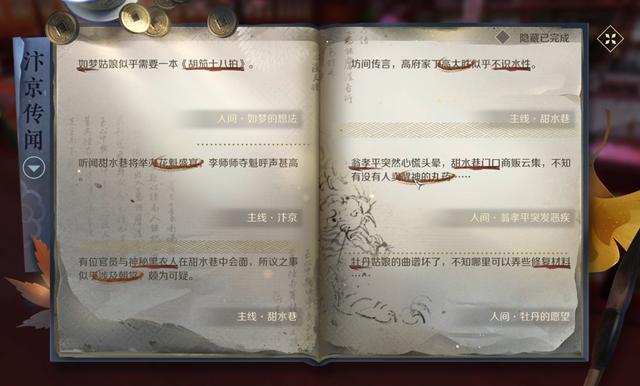 汴京传闻
隐藏已完成
如梦姑娘似乎需要一本《胡笳十八拍》。
人间·如梦的想法
听闻甜水巷将举办花魁盛宴，李师师夺魁呼声甚高。
主线·汴京
有位官员与神秘黑衣人在甜水巷中会面，所议之事
似乎涉及朝堂，颇为可疑。
主线·甜水巷
坊间传言，高府家丁高大胜似乎不识水性。
主线·甜水巷
翁孝平突然心慌头晕，甜水巷门口商贩云集，不知
有没有人卖醒神的丸药……
人间·翁孝平突发恶疾
牡丹姑娘的曲谱坏了，不知哪里可以弄些修复材料
……
人间·牡丹的愿望